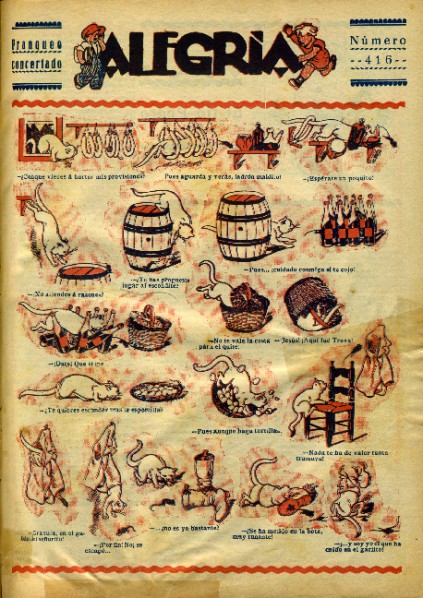 Franqueo
concertado
ALEGRIA
Número
--416--
—¿Conque vienes á hurtar mis provisiones?
Pues aguarda y verás, ladrón maldito!
—¡Espérate un poquito!
—¿No atiendes á razones?
—¿Te has propuesto
jugar al escondite?
—Pues... ¡cuidado conmigo si te cojo!
—No te vale la cesta
para el quite.
—¡Jesús! ¡Aquí fué Troya!
—¿Te quieres esconder tras la espuerta?
—Pues aunque haga tortilla...
—Nada te ha de valer tanta
—¡Por fin! No; se
escapó...
—...¿no es ya bastante?
—¡Se ha metido en la bota,
muy tunante!
—¡...y soy yo el que ha
caído en el garlito!